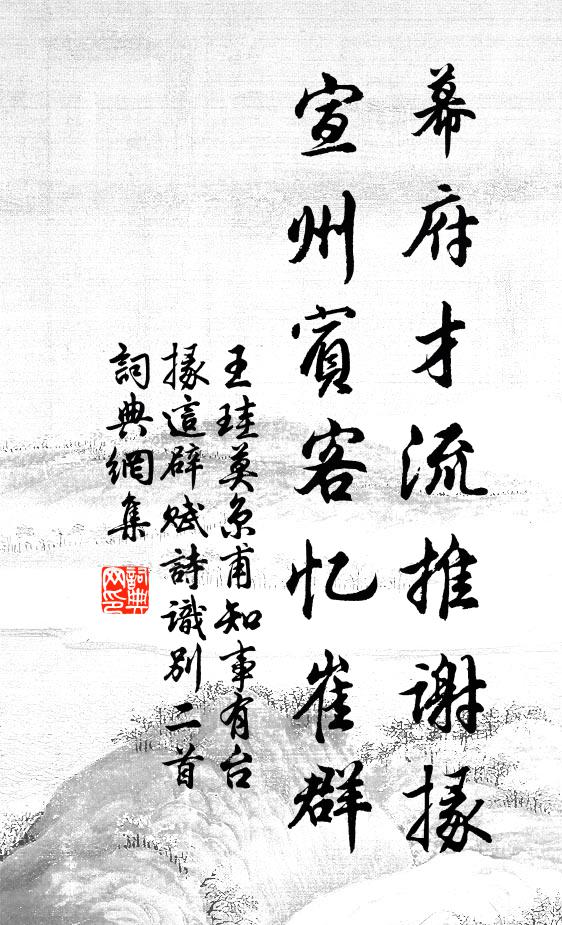 幕府才流推谢掾
宣州賓客忆崔群
王珪莫京甫知事有台
掾這辟赋詩識别二首
詞典網集
詞典网印